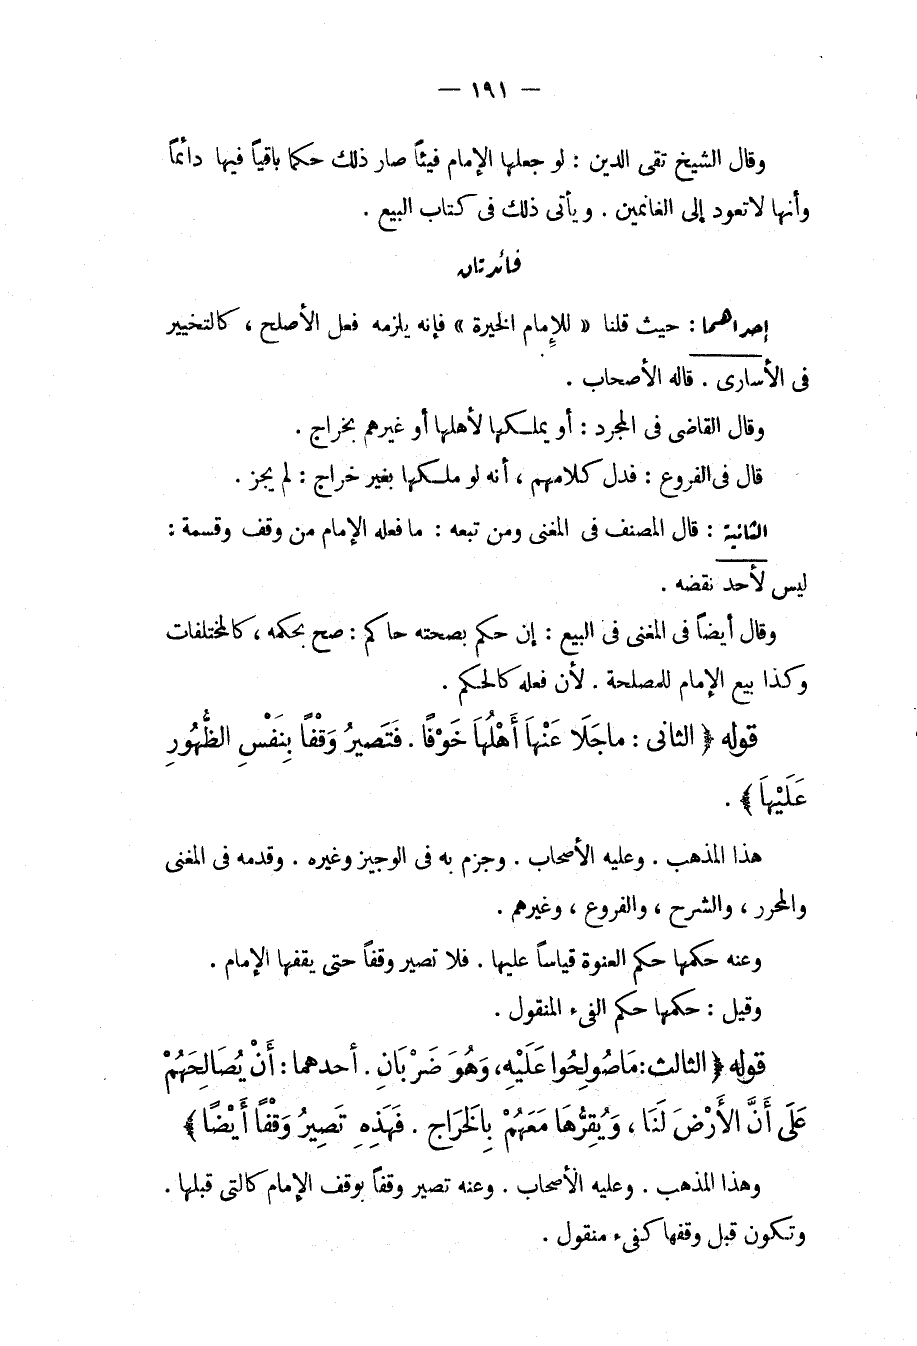 — ١٩١ —
وقال الشيخ تقى الدين : لو جعلها الإمام فيئاً صار ذلك حكما باقياً فيها دائماً
وأنها لاتعود إلى الغانمين . ويأتى ذلك فى كتاب البيع .
فائدتان
إحداهما : حيث قلنا « للإمام الخيرة » فإنه يلزمه فعل الأصلح ، كالتخيير
فى الأسارى . قاله الأصحاب .
وقال القاضى فى المجرد : أو يملكها لأهلها أو غيرهم بخراج .
قال فى الفروع : فدل كلامهم ، أنه لو ملكها بغير خراج : لم يجز .
الثانية : قال المصنف فى المغنى ومن تبعه : مافعله الإمام من وقف وقسمة :
ليس لأحد نقضه .
وقال أيضاً فى المغنى فى البيع : إن حكم بصحته حاكم : صح بحكمه ، كالمختلفات
وكذا بيع الإمام للمصلحة . لأن فعله كالحكم .
قوله ﴿ الثانى : ماجَلَا عَنْهَا أَهْلُهَا خَوْفًا . فَتَصِيرُ وَقْفاً بِنَفْسِ الظُّهُورِ
عَلَيْهَا ﴾ .
هذا المذهب . وعليه الأصحاب . وجزم به فى الوجيز وغيره . وقدمه فى المغنى
والمحرر ، والشرح ، والفروع ، وغيرهم .
وعنه حكمها حكم العنوة قياساً عليها . فلا تصير وقفاً حتى يقفها الإمام .
وقيل : حكمها حكم الفىء المنقول .
قوله ﴿ الثالث : مَاصُولِحُوا عَلَيْهِ، وَهُوَ ضَرْبَانِ . أحدهما : أَنْ يُصَالِحَهُمْ
عَلَى أَنَّ الأَرْضَ لَنَا ، وَيُقِرُّهَا مَعَهُمْ بِالْخَرَاجِ . فَهَذِهِ تَصِيرُ وَقْفًا أَيْضًا ﴾
وهذا المذهب . وعليه الأصحاب . وعنه تصير وقفاً بوقف الإمام كالتى قبلها .
وتكون قبل وقفها كفىء منقول .